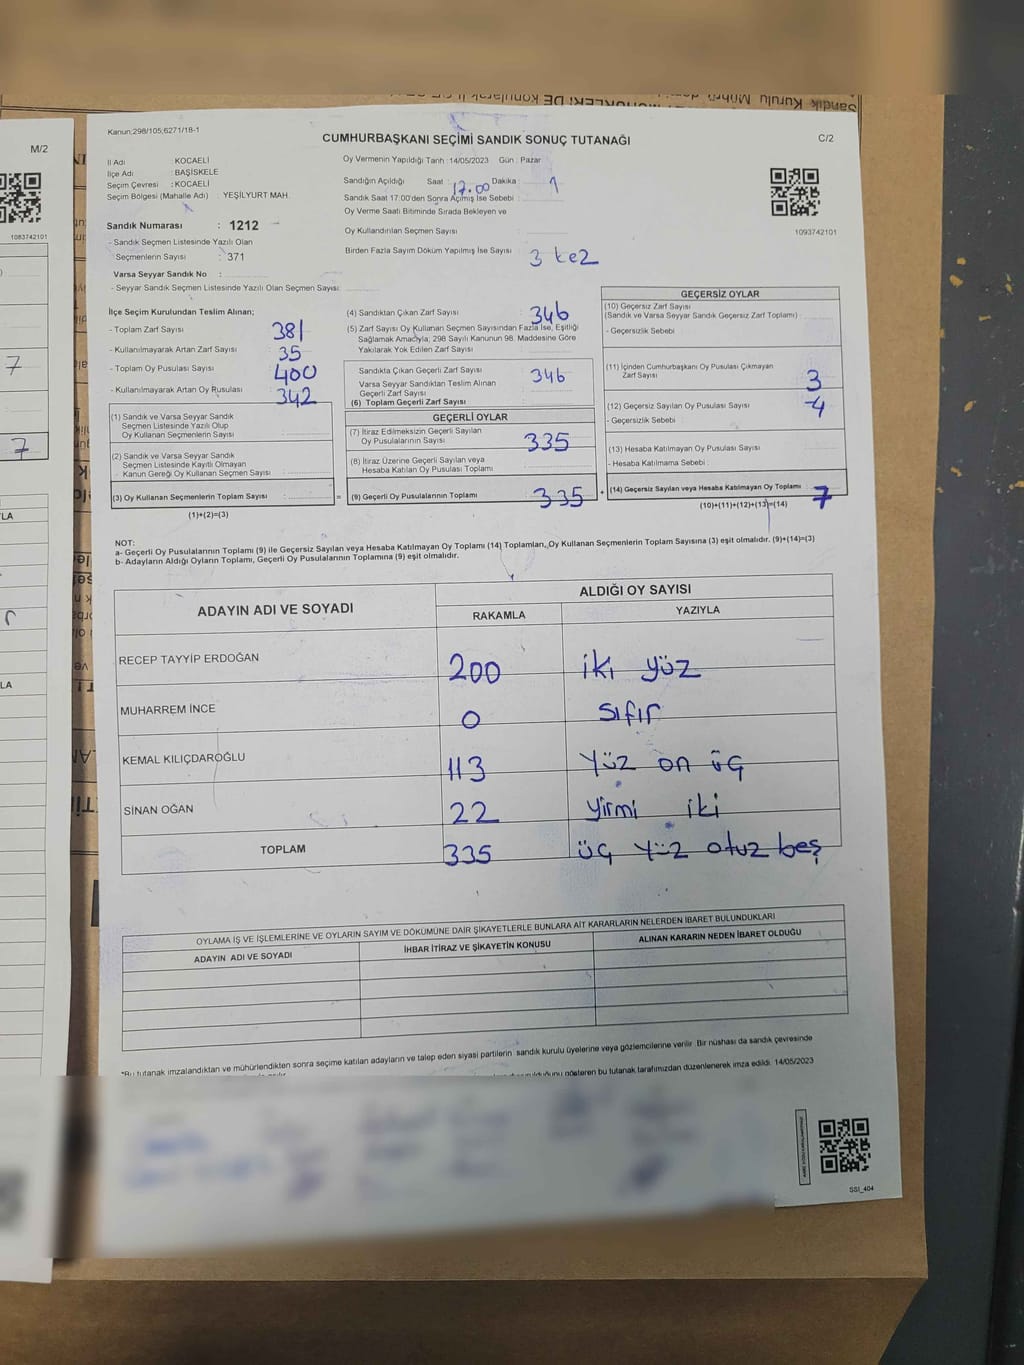 Kanun;298/105,6271/18-1
CUMHURBAŞKANI SEÇİMİ SANDIK SONUÇ TUTANAĞI
C/2
M/2
İl Adı KOCAELİ
İlçe Adı : BAŞİSKELE
Seçim Çevresi : KOCAELİ
Seçim Bölgesi (Mahalle Adı) : YEŞİLYURT MAH.
Oy Vermenin Yapıldığı Tarih :14/05/2023 Gün : Pazar
Sandığın Açıldığı Saat : 17.00 Dakika : 1
Sandık Saat 17.00'den Sonra Açılmış İse Sebebi :
Oy Verme Saati Bitiminde Sırada Bekleyen ve
Oy Kullandırılan Seçmen Sayısı
Birden Fazla Sayım Döküm Yapılmış İse Sayısı : 3 kez
1083742101
1093742101
Sandık Numarası : 1212
- Sandık Seçmen Listesinde Yazılı Olan
Seçmenlerin Sayısı : 371
Varsa Seyyar Sandık No :
- Seyyar Sandık Seçmen Listesinde Yazılı Olan Seçmen Sayısı:
İlçe Seçim Kurulundan Teslim Alınan;
- Toplam Zarf Sayısı 381
- Kullanılmayarak Artan Zarf Sayısı 35
- Toplam Oy Pusulası Sayısı 400
- Kullanılmayarak Artan Oy Pusulası 342
(1) Sandık ve Varsa Seyyar Sandık
Seçmen Listesinde Yazılı Olup
Oy Kullanan Seçmenlerin Sayısı
(2) Sandık ve Varsa Seyyar Sandık
Seçmen Listesinde Kayıtlı Olmayan
Kanun Gereği Oy Kullanan Seçmen Sayısı
(3) Oy Kullanan Seçmenlerin Toplam Sayısı :
(1)+(2)=(3)
(4) Sandıktan Çıkan Zarf Sayısı 346
(5) Zarf Sayısı Oy Kullanan Seçmen Sayısından Fazla İse, Eşitliği
Sağlamak Amacıyla; 298 Sayılı Kanunun 98. Maddesine Göre
Yakılarak Yok Edilen Zarf Sayısı
Sandıkta Çıkan Geçerli Zarf Sayısı 346
Varsa Seyyar Sandıktan Teslim Alınan
Geçerli Zarf Sayısı
(6) Toplam Geçerli Zarf Sayısı
GEÇERLİ OYLAR
(7) İtiraz Edilmeksizin Geçerli Sayılan
Oy Pusulalarının Sayısı 335
(8) İtiraz Üzerine Geçerli Sayılan veya
Hesaba Katılan Oy Pusulası Toplamı
= (9) Geçerli Oy Pusulalarının Toplamı 335
GEÇERSİZ OYLAR
(10) Geçersiz Zarf Sayısı
(Sandık ve Varsa Seyyar Sandık Geçersiz Zarf Toplamı)
- Geçersizlik Sebebi
(11) İçinden Cumhurbaşkanı Oy Pusulası Çıkmayan
Zarf Sayısı 3
(12) Geçersiz Sayılan Oy Pusulası Sayısı 4
- Geçersizlik Sebebi :
(13) Hesaba Katılmayan Oy Pusulası Sayısı
- Hesaba Katılmama Sebebi :
+ (14) Geçersiz Sayılan veya Hesaba Katılmayan Oy Toplamı 7
(10)+(11)+(12)+(13)=(14)
NOT:
a- Geçerli Oy Pusulalarının Toplamı (9) ile Geçersiz Sayılan veya Hesaba Katılmayan Oy Toplamı (14) Toplamları, Oy Kullanan Seçmenlerin Toplam Sayısına (3) eşit olmalıdır. (9)+(14)=(3)
b- Adayların Aldığı Oyların Toplamı, Geçerli Oy Pusulalarının Toplamına (9) eşit olmalıdır.
ADAYIN ADI VE SOYADI ALDIĞI OY SAYISI
RAKAMLA YAZIYLA
RECEP TAYYİP ERDOĞAN 200 iki yüz
MUHARREM İNCE 0 sıfır
KEMAL KILIÇDAROĞLU 113 yüz on üç
SİNAN OĞAN 22 yirmi iki
TOPLAM 335 üç yüz otuz beş
OYLAMA İŞ VE İŞLEMLERİNE VE OYLARIN SAYIM VE DÖKÜMÜNE DAİR ŞİKAYETLERLE BUNLARA AİT KARARLARIN NELERDEN İBARET BULUNDUKLARI
ADAYIN ADI VE SOYADI İHBAR İTİRAZ VE ŞİKAYETİN KONUSU ALINAN KARARIN NEDEN İBARET OLDUĞU
*Bu tutanak imzalandıktan ve mühürlendikten sonra seçime katılan adayların ve talep eden siyasi partilerin sandık kurulu üyelerine veya gözlemcilerine verilir. Bir nüshası da sandık çevresinde
gösteren bu tutanak tarafımızdan düzenlenerek imza edildi. 14/05/2023
SSI_404
7
7
LA
LA